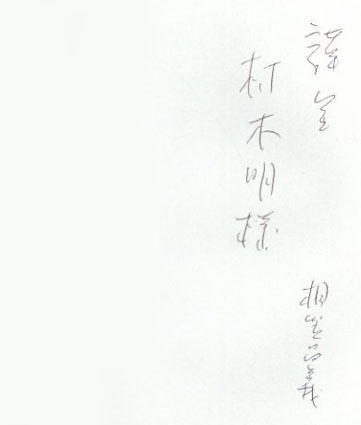 謹呈
村木明様
相葉昌義